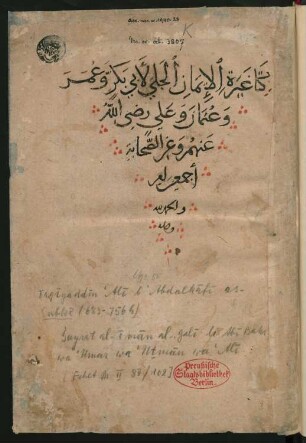 كتاب غيرة الإيمان الجلي لأبي بكر وعمر
وعثمان وعلي رضي الله
عنهم وعن الصحابة
أجمعين
والحمد لله
وحده
Taqīyaddīn ʿAlī b. ʿAbdalkāfī as-
Subkī (683-756 h)
Ġayrat al-īmān al-ǧalī li-Abī Bakr
wa ʿUmar wa ʿUtmān wa ʿAlī
Preußische
Staatsbibliothek
Berlin.